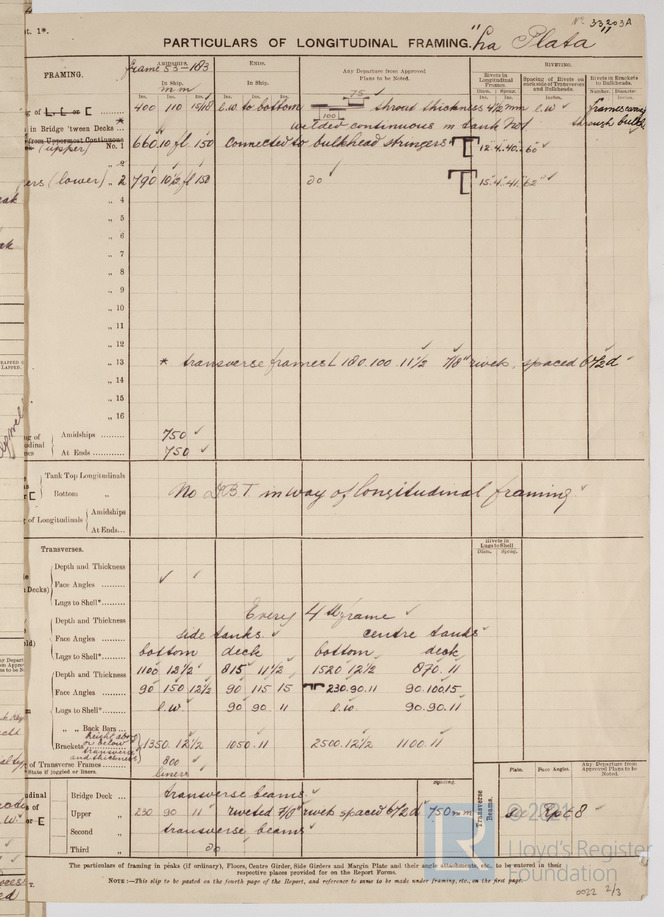 No 33203A
t. 1*.
PARTICULARS OF LONGITUDINAL FRAMING. "La Plata"
FRAMING.
AMIDSHIPS.
frame 53-183
In Ship.
mm
ENDS.
In Ship.
Any Departure from Approved Plans to be Noted.
RIVETING.
Rivets in Longitudinal Frames.
Spacing of Rivets on each side of Transverses and Bulkheads.
Rivets in Brackets to Bulkheads.
Diam. Spcng.
Number. Diameter.
Ins. Ins. Ins. Ins. Ins. Ins. Ins. Ins. Ins. Inches.
ng of L or C 400 110 15/18 l.w. to bottom 75 100 throat thickness 4 1/2 mm l.w. frames carry through bulk
in Bridge 'tween Decks ... * welded continuous in tank No 1
from Uppermost Continuous
(upper) No. 1 660 10 fl 150 connected to bulkhead stringers T 12.4.40. 60
„ 2
ers (lower) „ 2 790 10½ fl 150 do T 15.4.41. 62
„ 4
„ 5
„ 6
„ 7
„ 8
„ 9
„ 10
„ 11
„ 12
„ 13 * transverse frames L 180.100 11 1/2 7/8" rivets, spaced 6 1/2 d
„ 14
„ 15
„ 16
ng of Amidships 750
udinal nes At Ends 750
Tank Top Longitudinals
Bottom „ No D.B.T. in way of longitudinal framing
g of Longitudinals Amidships
At Ends...
Transverses.
Rivets in Lugs to Shell
Diam. Spcng.
Depth and Thickness
Decks) Face Angles
Lugs to Shell*
Every 4th frame
Depth and Thickness
old) Face Angles side tanks. centre tanks
Lugs to Shell* bottom deck bottom deck
Depth and Thickness 1100 12 1/2 815 11 1/2 1520 12 1/2 870.11
Face Angles 90 150 12 1/2 90 115 15 230.90.11 90.100.15
Lugs to Shell* l.w. 90 90 11 l.w. 90.90.11
„ „ Back Bars
Brackets height above or below transverse and thickness 1350.12 1/2 1050.11 2500.12 1/2 1100.11
of Transverse Frames 800
*State if joggled or liners. liners
Plate. Face Angles. Any Departure from Approved Plans to be Noted.
Spacing.
Transverse Beams.
udinal Bridge Deck „ transverse beams
s of Upper „ 230 90 11 riveted 7/8" rivets spaced 6 1/2 d 750 mm see Rpt 8
or E Second „ transverse beams
Third „ do
The particulars of framing in peaks (if ordinary), Floors, Centre Girder, Side Girders and Margin Plate and their angle attachments, etc., to be entered in their
respective places provided for on the Report Forms.
NOTE:—This slip to be pasted on the fourth page of the Report, and reference to same to be made under framing, etc., on the first page.
© 2021
LR
Lloyd's Register
Foundation
0022 2/3